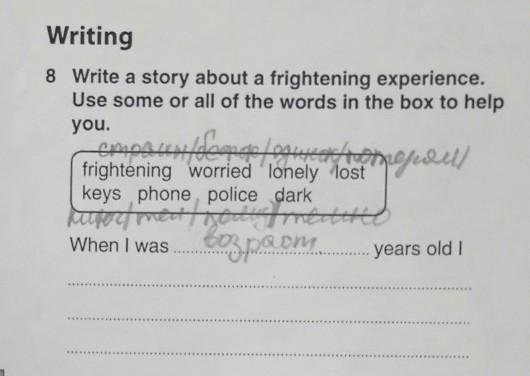 Writing
8 Write a story about a frightening experience.
Use some or all of the words in the box to help
you.
frightening worried lonely lost
keys phone police dark
возраст
When I was ........................ years old I